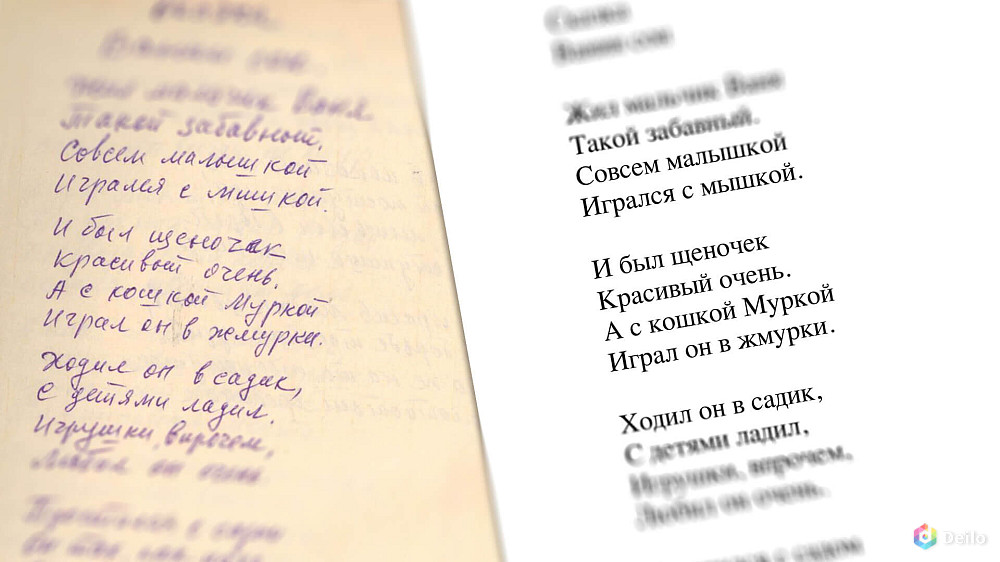 Сказка
Ванин сон.
Жил мальчик Ваня
Такой забавный,
Совсем малышкой
Игрался с мишкой.
И был щеночек
Красивый очень.
А с кошкой Муркой
Играл он в жмурки.
Ходил он в садик,
С детями ладил.
Игрушки, впрочем,
Любил он очень.
Сказка
Ванин сон
Жил мальчик Ваня
Такой забавный.
Совсем малышкой
Игрался с мышкой.
И был щеночек
Красивый очень.
А с кошкой Муркой
Играл он в жмурки.
Ходил он в садик,
С детями ладил,
Игрушки, впрочем,
Любил он очень.
с садом
Deilo